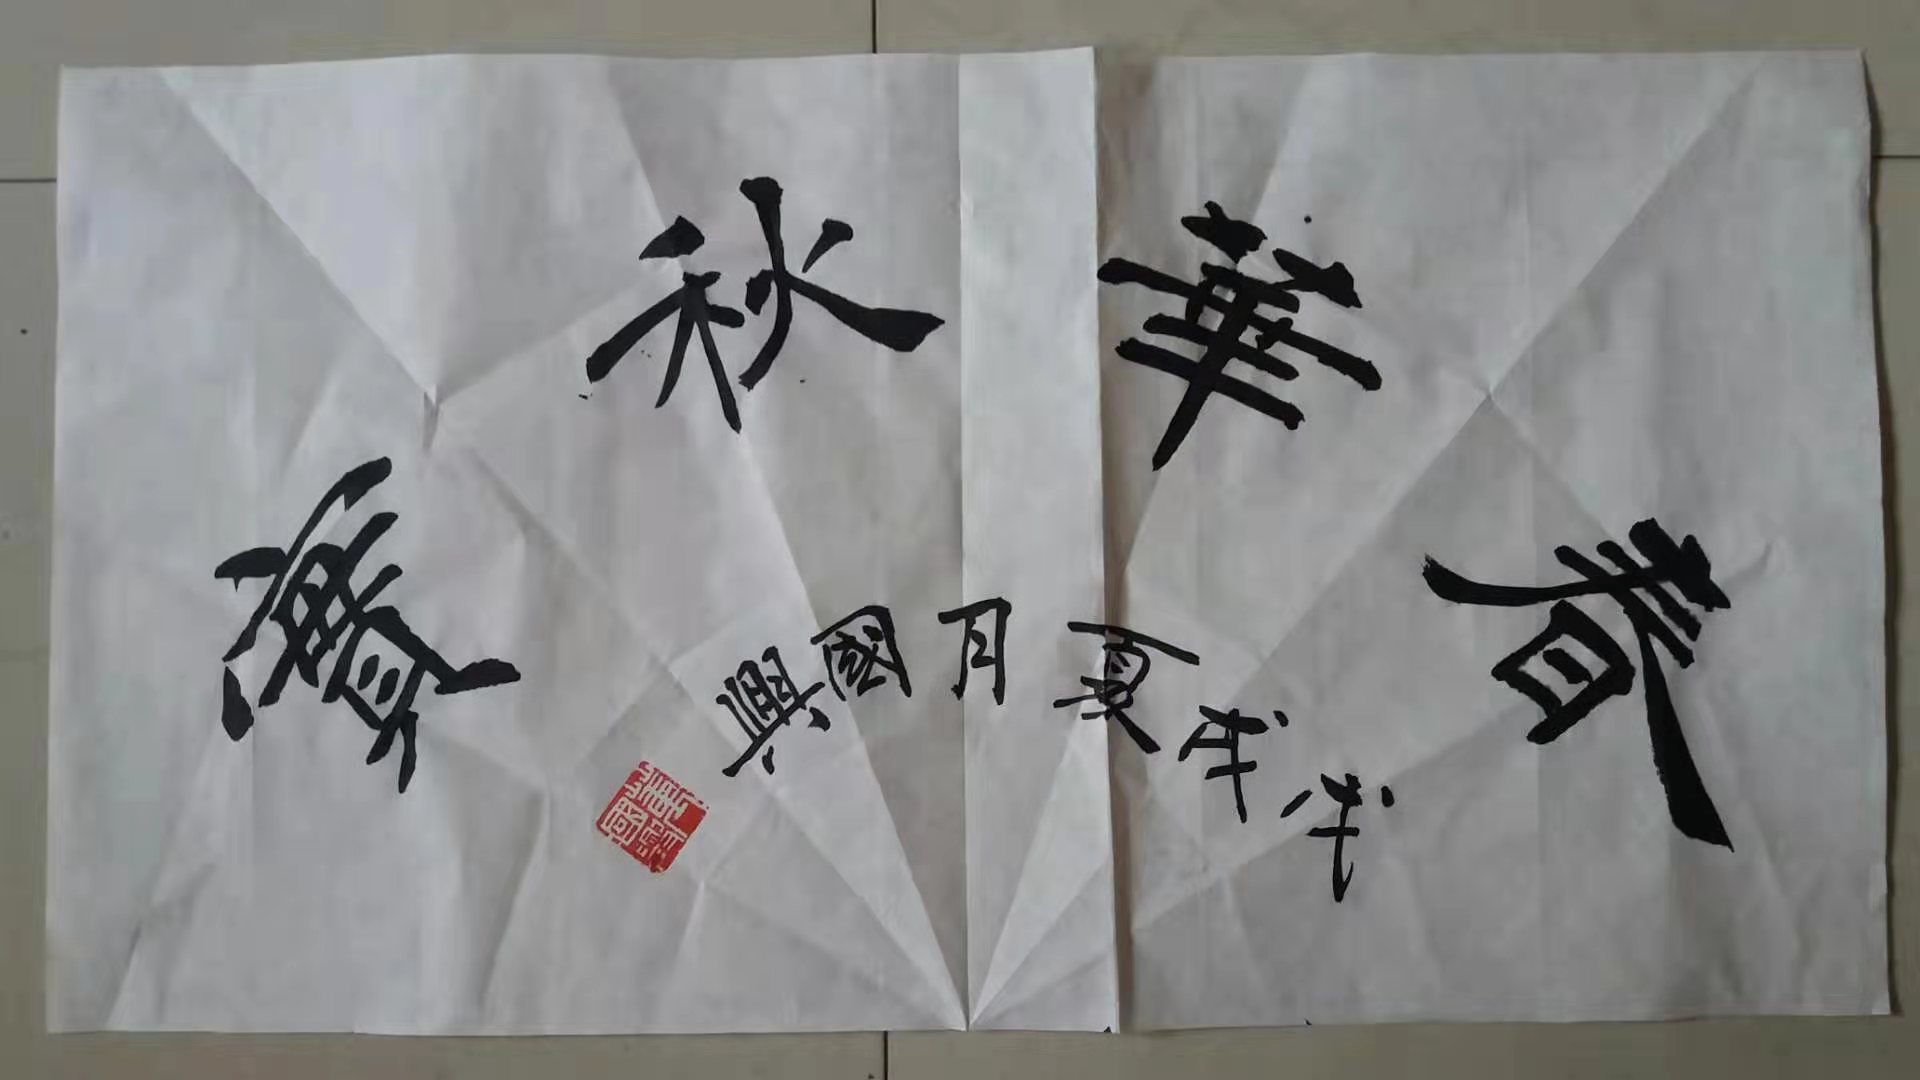 春華秋實
戊戌夏月國興